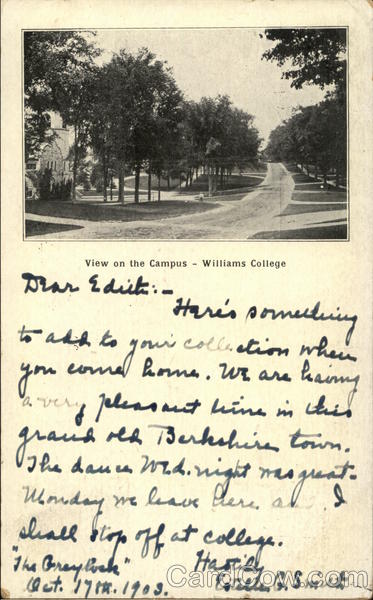 View on the Campus – Williams College
Dear Edith:-
Here's something
to add to your collection when
you come home. We are having
a very pleasant time in this
grand old Berkshire town.
The dance Wed. night was great.
Monday we leave here and I
shall stop off at college.
"The Greylock" Hastily
Oct. 17th. 1903. Smith
CardCow.com